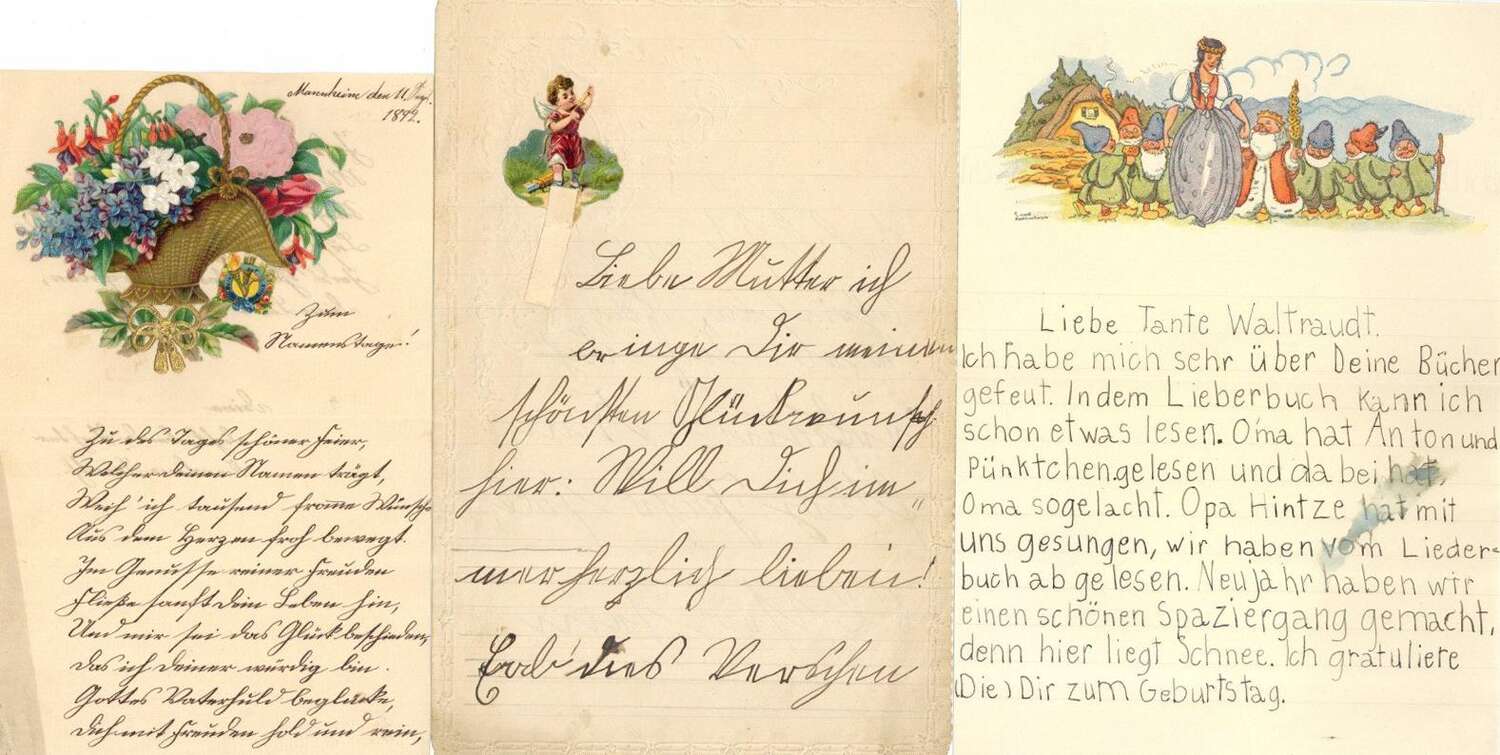 Mannheim den 11. Sept.
1892.
Zum
Namenstage!
Zu des Tages schöner Feier,
Welcher deinen Namen trägt,
Weih' ich tausend fromme Wünsche
Aus dem Herzen froh bewegt.
Im Genusse reiner Freuden
Fließe sanft dein Leben hin,
Und mir sei das Glück beschieden,
Das ich deiner würdig bin.
Gottes Vaterhuld beglücke,
Dich mit Freuden hold und rein,
Liebe Mutter ich
bringe Dir meinen
schönsten Glückwunsch
hier: Will Dich im„
mer herzlich lieben!
dies Verschen
Liebe Tante Waltraudt.
Ich habe mich sehr über Deine Bücher
gefeut. In dem Lieberbuch kann ich
schon etwas lesen. Oma hat Anton und
Pünktchen gelesen und da bei hat,
Oma so gelacht. Opa Hintze hat mit
uns gesungen, wir haben vom Lieder=
buch ab ge lesen. Neujahr haben wir
einen schönen Spaziergang gemacht,
denn hier liegt Schnee. Ich gratuliete
(Die) Dir zum Geburtstag.